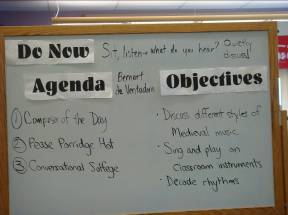 Do Now Sit, listen - what do you hear? Quietly
discuss!
Agenda Bernart
de Ventadorn
Objectives
① Composer of the Day
② Pease Porridge Hot
③ Conversational Solfege
· Discuss different styles of
Medieval music
· Sing and play on
classroom instruments
· Decode rhythms